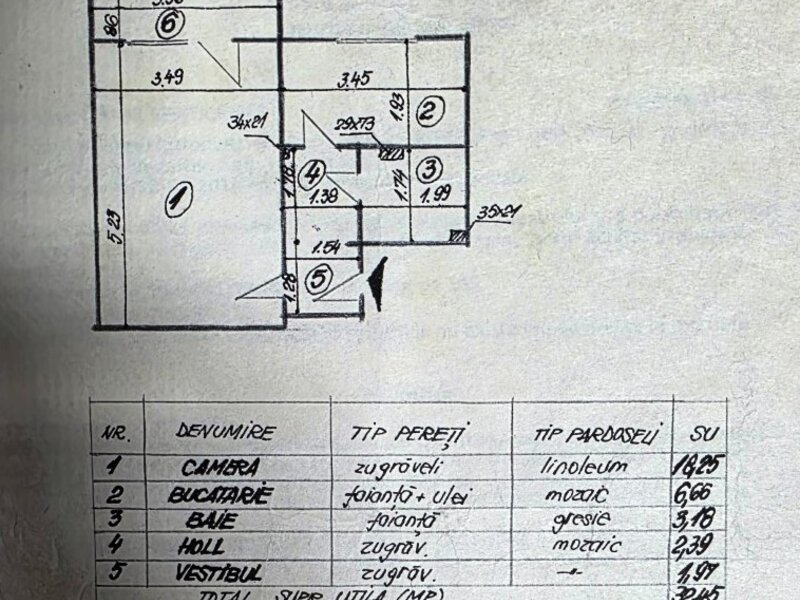 86
6
3.49
3.45
1.93
2
34x21
29x73
1.78
4
1.74
3
1
1.38
1.99
35x21
5.23
1.54
1.28
5
NR. DENUMIRE TIP PEREȚI TIP PARDOSELI SU
1 CAMERA zugrăveli linoleum 18,25
2 BUCATARIE faianță + ulei mozaic 6,66
3 BAIE faianță gresie 3,18
4 HOLL zugrăv. mozaic 2,39
5 VESTIBUL zugrăv. -"- 1,97
TOTAL SUPR. UTILA (MP) 32,45